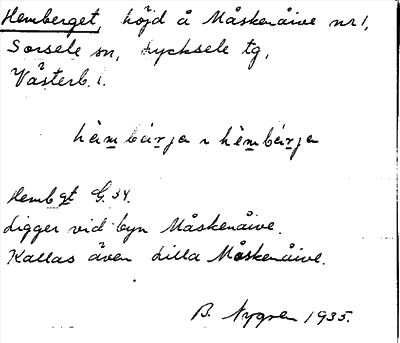 Hemberget, höjd å Måskenåive nr 1,
Sorsele sn, Lycksele tg,
Västerb. l.
hèmbærja ~ hèmbærja
Hembgt G. 34.
Ligger vid byn Måskenåive.
Kallas även Lilla Måskenåive.
B. Nygren 1935.